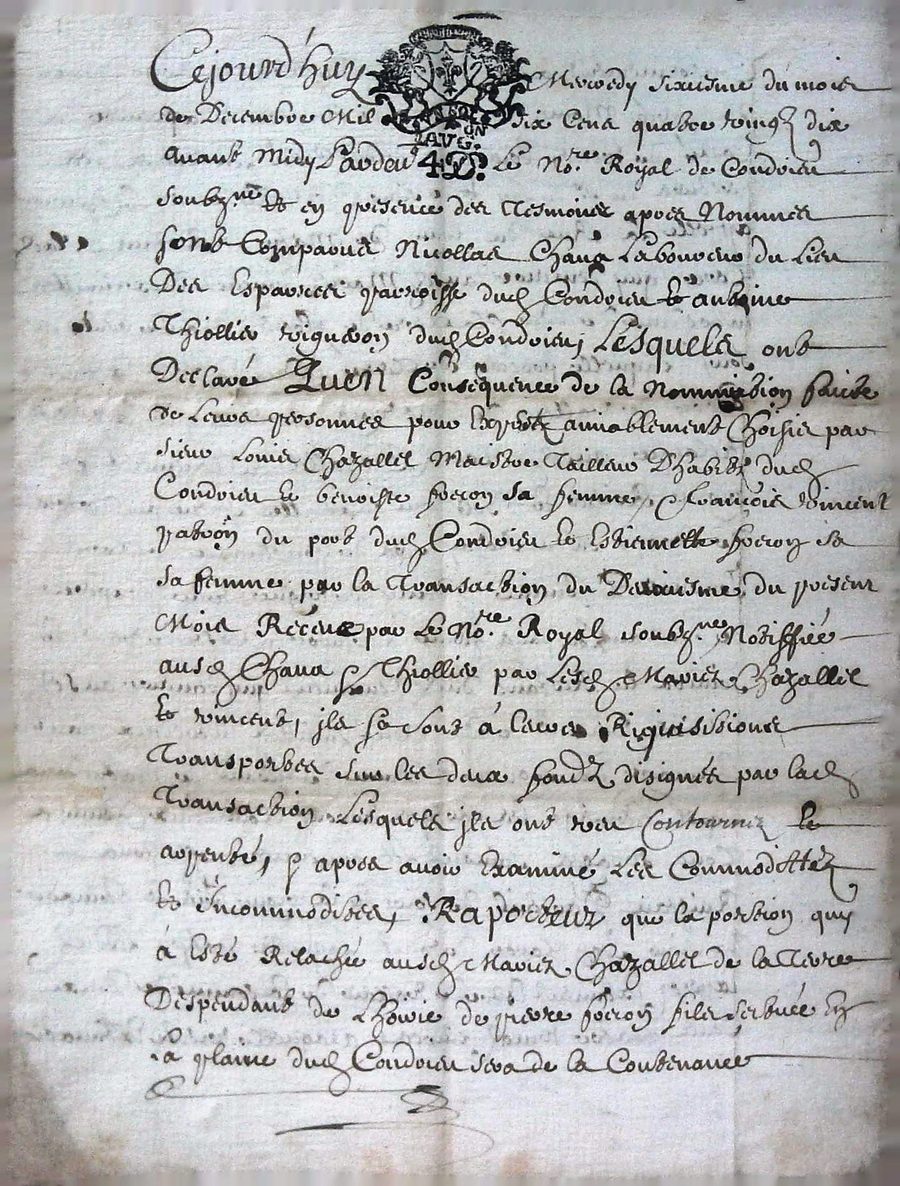 Cejourd'huy Mercredy sixiesme du mois
de Decembre Mil six Cens quatre vingt dix
avant Midy Pardevt Le Nore Royal de Condrieu
soubzne et en presence des Tesmoins apres Nommes
sont Comparus Nicollas Chana Laboureur du Lieu
Des Esparres parroisse dud Condrieu et antoine
Thiollier vigneron dud Condrieu, Lesquels ont
Declaré Quen Consequence de la Nommination faicte
de Leurs personnes pour Expertz amiablement Choisis par
sieur Louis Chazallet Maistre Tailleur D'habitz dud
Condrieu et benoiste foeron sa femme, & François vincent
patron du port dud Condrieu et Estiennette foeron sa
sa femme par la Transaction du Deuxiesme du present
Mois Receue par Le Nore Royal soubzne Notiffiée
ausd Chana & Thiollier par Lesd Mariez Chazallet
et vincent, ils se sont à leurs Riquisitions
Transportes sur les deux fondz disignés par lad
Transaction Lesquels ils ont veu Contournez et
arpenté, & apres avoir Examiné Les Commodittéz
et Incommodites, Raporteur que la portion quy
à Esté Relachée ausd Mariez Chazallet de la Terre
Despendant de L'hoirie de pierre foeron fils scituée En
la plaine dud Condrieu sera de la Contenance